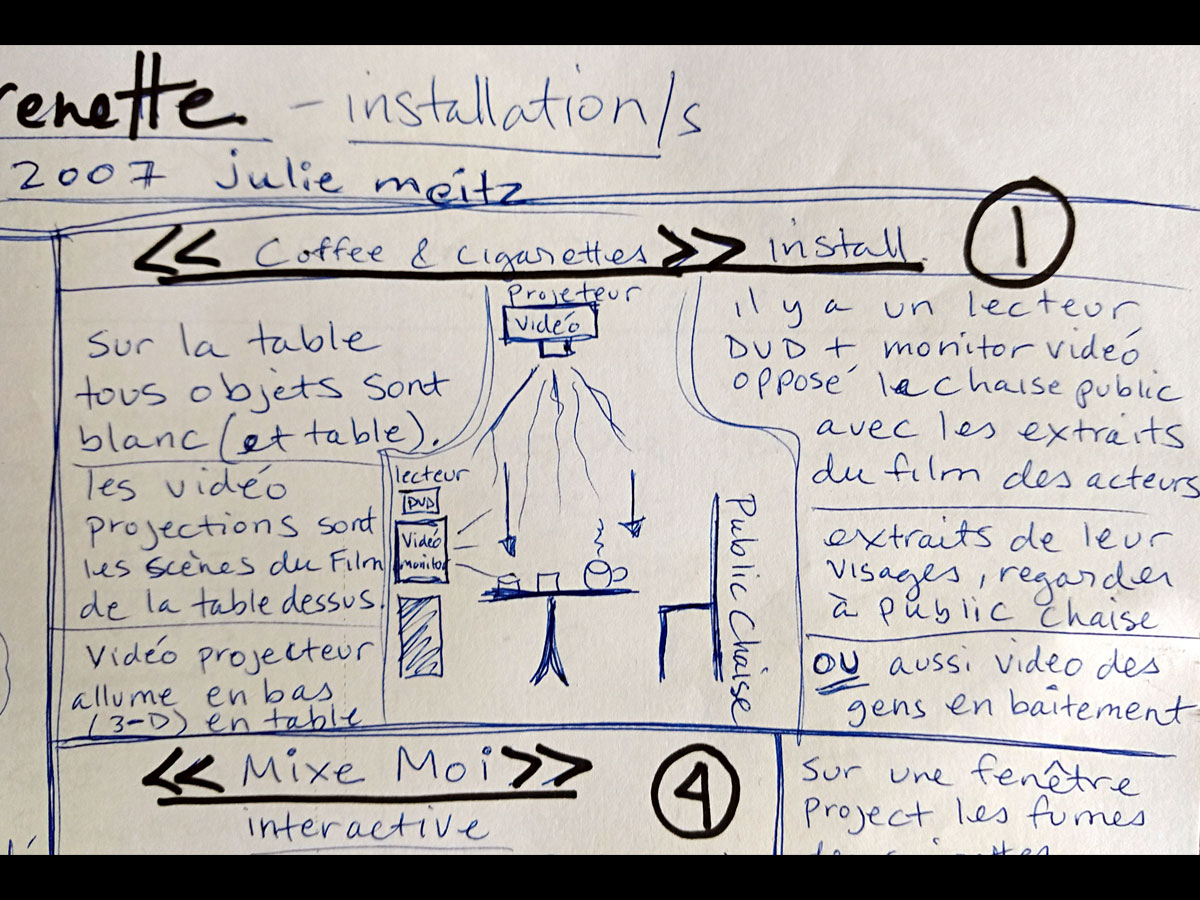 renette - installation/s
2007 julie meitz
<< Coffee & cigarettes >> install. 1
Sur la table
tous objets sont
blanc (et table).
les vidéo
projections sont
les scènes du Film
de la table dessus.
Vidéo projecteur
allume en bas
(3-D) en table
Projeteur
vidéo
lecteur
DVD
Vidéo
monitor
Public Chaise
il y a un lecteur
DVD + monitor vidéo
opposé la chaise public
avec les extraits
du film des acteurs
extraits de leur
visages, regarder
à public chaise
OU aussi video des
gens en baîtement
<< Mixe Moi >> 4
interactive
Sur une fenêtre
project les fumes